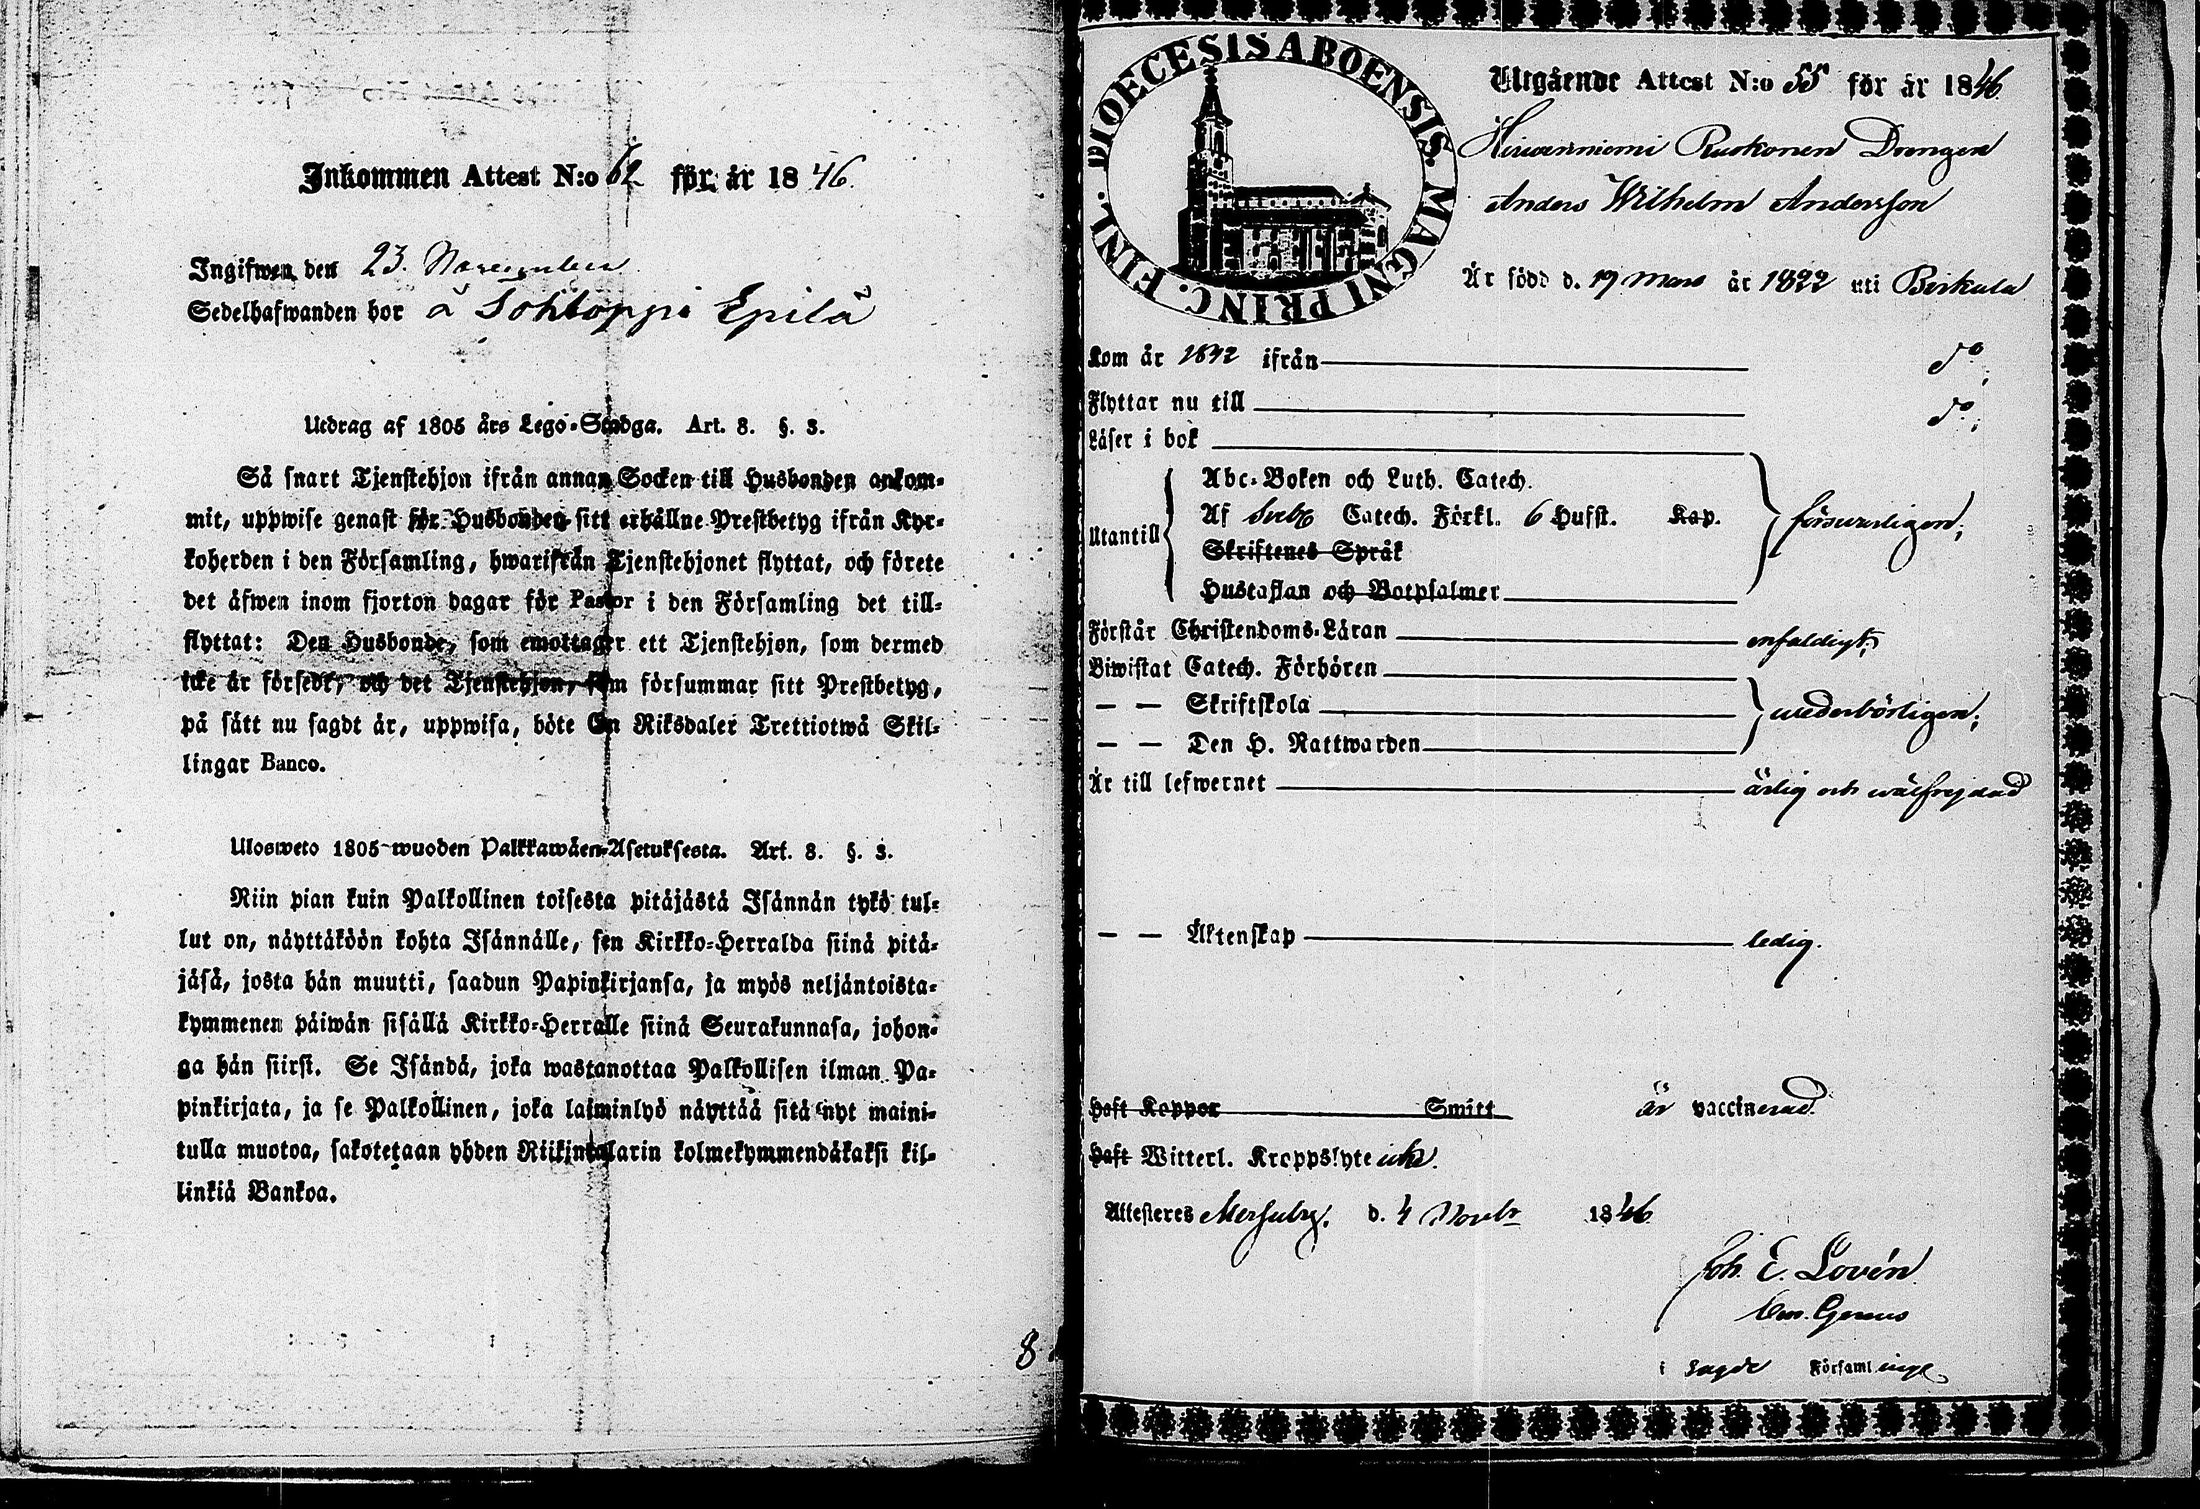 Inkommen Attest N:o 62 för år 1846.
Ingifwen den 23. November
Sedelhafwanden bor å Sohloppi Epilä
Utdrag af 1805 års Lego-Stadga. Art. 8. §. 3.
Så snart Tjenstehjon ifrån annan Socken till Husbonden ankom-
mit, uppwise genast för Husbonden sitt erhållne Prestbetyg ifrån Kyr-
koherden i den Församling, hwarifrån Tjenstehjonet flyttat, och förete
det äfwen inom fjorton dagar för Pastor i den Församling det till-
flyttat: Den Husbonde, som emottager ett Tjenstehjon, som dermed
icke är försedt, och det Tjenstehjon, som försummar sitt Prestbetyg,
på sätt nu sagdt är, uppwisa, böte En Riksdaler Trettiotwå Skil-
lingar Banco.
Ulosweto 1805 wuoden Palkkawäen-Asetuksesta. Art. 8. §. 3.
Niin pian kuin Palkollinen toisesta pitäjästä Isännän tykö tul-
lut on, näyttäköön kohta Isännälle, sen Kirkko-Herralda siinä pitä-
jäsä, josta hän muutti, saadun Papinkirjansa, ja myös neljäntoista-
kymmenen päiwän sisällä Kirkko-Herralle siinä Seurakunnasa, johon-
ga hän siirst. Se Isändä, joka wastanottaa Palkollisen ilman Pa-
pinkirjata, ja se Palkollinen, joka laiminlyö näyttää sitä nyt maini-
tulla muotoa, sakotetaan yhden Riikintalarin kolmekymmendäkaksi kil-
linkiä Bankoa.
8
DIOECESIS ABOENSIS. MAGNI PRINC. FINL.
Utgående Attest N:o 55 för år 1846.
Ruokonen Drengen
Anders Wilhelm Andersson
Är född d. 19 Mars år 1822 uti Birkala
Kom år 1842 ifrån do;
Flyttar nu till do;
Läser i bok
Abc-Boken och Luth. Catech.
Utantill Af Sveb Catech. Förkl. 6 Hufst. Kap. försvarligen;
Skriftenes Språk
Hustaflan och Botpsalmer
Förstår Christendoms-Läran enfaldigt;
Biwistat Catech. Förhören
— — Skriftskola wederbörligen;
— — Den H. Nattwarden
Är till lefwernet ärlig och wälfrejdad
— — Äktenskap ledig.
Haft Koppor Smitt är vaccinerad.
Haft Witterl. Kroppslyte icke.
Attesteres Messuby, d. 4 Novbr 1846
Joh. E. Lovén
i sagde Församlinge